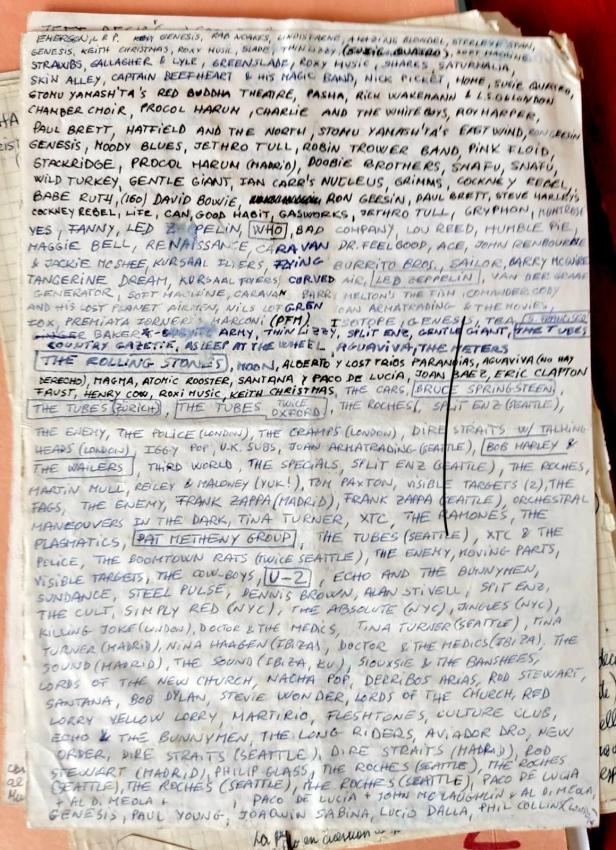 EMERSON, L & P. GENESIS, RAB NOAKES, LINDISFARNE, AMAZING BLONDEL, STEELEYE SPAN,
GENESIS, KEITH CHRISTMAS, ROXY MUSIC, SLADE, THIN LIZZY (SUZIE QUATRO), SOFT MACHINE,
STRAWBS, GALLAGHER & LYLE, GREENSLADE, ROXY MUSIC, SHARKS, SATURNALIA,
SKIN ALLEY, CAPTAIN BEEFHEART & HIS MAGIC BAND, NICK PICKET, HOME, SUSIE QUATRO,
STOMU YAMASH'TA'S RED BUDDHA THEATRE, PASHA, RICK WAKEMANN & L.S.O. & LONDON
CHAMBER CHOIR, PROCOL HARUN, CHARLIE AND THE WHITEBOYS, ROY HARPER,
PAUL BRETT, HATFIELD AND THE NORTH, STOMU YAMASH'TA'S EAST WIND,
GENESIS, MOODY BLUES, JETHRO TULL, ROBIN TROWER BAND, PINK FLOID,
STACKRIDGE, PROCOL HARUN (MADRID), DOOBIE BROTHERS, SNAFU, SNAFU,
WILD TURKEY, GENTLE GIANT, IAN CARR'S NUCLEUS, GRIMMS, COCKNEY REBEL,
BABE RUTH, (160) DAVID BOWIE, RON GEESIN, PAUL BRETT, STEVE HARLEY'S
COCKNEY REBEL, LIFE, CAN, GOOD HABIT, GASWORKS, JETHRO TULL, GRYPHON, MONTROSE
YES, FANNY, LED ZEPPELIN, WHO, BAD COMPANY, LOU REED, HUMBLE PIE,
MAGGIE BELL, RENAISSANCE, CARAVAN DR. FEELGOOD, ACE, JOHN RENBOURNE
& JACKIE MCSHEE, KURSAAL FLIERS, FLYING BURRITO BROS., SAILOR, BARRY MCGUIRE
TANGERINE DREAM, KURSAAL FLYERS, CURVED AIR, LED ZEPPELIN, VAN DER GRAAF
GENERATOR, SOFT MACHINE, CARAVAN BARRY MELTON'S THE FISH, COMANDER CODY
AND HIS LOST PLANET AIRMEN, NILS LOFGREN JOAN ARMATRADING & THE MOVIES,
FOX, PREMIATA FORNERIA MARCONI (PFM), ISOTOPE, GENESIS, TEA,
GINGER BAKER ARMY, THIN LIZZY, SPLIT ENZ, GENTLE GIANT, THE TUBES
COUNTRY GAZETTE, ASLEEP AT THE WHEEL, AGUAVIVA, THE METERS
THE ROLLING STONES, MOON, ALBERTO Y LOST TRIOS PARANOIAS, AGUAVIVA (NO HAY
DERECHO), MAGMA, ATOMIC ROOSTER, SANTANA Y PACO DE LUCIA, JOAN BAEZ, ERIC CLAPTON
FAUST, HENRY COW, ROXI MUSIC, KEITH CHRISTMAS, THE CARS, BRUCE SPRINGSTEEN,
THE TUBES (ZURICH), THE TUBES TWICE OXFORD, THE ROCHES, SPLIT ENZ (SEATTLE),
THE ENEMY, THE POLICE (LONDON), THE CRAMPS (LONDON), DIRE STRAITS W/ TALKING
HEADS (LONDON), IGGY POP, U.K. SUBS, JOAN ARMATRADING (SEATTLE), BOB MARLEY &
THE WAILERS, THIRD WORLD, THE SPECIALS, SPLIT ENZ (SEATTLE), THE ROCHES,
MARTIN MULL, REILEY & MALONEY (YUK!), TOM PAXTON, VISIBLE TARGETS (2), THE
FAGS, THE ENEMY, FRANK ZAPPA (MADRID), FRANK ZAPPA (SEATTLE), ORCHESTRAL
MANEOUVERS IN THE DARK, TINA TURNER, XTC, THE RAMONES, THE
PLASMATICS, PAT METHENY GROUP, THE TUBES (SEATTLE), XTC & THE
POLICE, THE BOOMTOWN RATS (TWICE SEATTLE), THE ENEMY, MOVING PARTS,
VISIBLE TARGETS, THE COW-BOYS, U-2, ECHO AND THE BUNNYMEN,
SUNDANCE, STEEL PULSE, DENNIS BROWN, ALAN STIVELL, SPIT ENZ,
THE CULT, SIMPLY RED (NYC), THE ABSOLUTE (NYC), JINGLES (NYC),
KILLING JOKE (LONDON), DOCTOR & THE MEDICS, TINA TURNER (SEATTLE), TINA
TURNER (MADRID), NINA HAAGEN (IBIZA), DOCTOR & THE MEDICS (IBIZA), THE
SOUND (MADRID), THE SOUND (IBIZA, KU), SIOUXSIE & THE BANSHEES,
LORDS OF THE NEW CHURCH, NACHA POP, DERRIBOS ARIAS, ROD STEWART,
SANTANA, BOB DYLAN, STEVIE WONDER, LORDS OF THE CHURCH, RED
LORRY YELLOW LORRY, MARTIRIO, FLESHTONES, CULTURE CLUB,
ECHO & THE BUNNYMEN, THE LONG RIDERS, AVIADOR DRO, NEW
ORDER, DIRE STRAITS (SEATTLE), DIRE STRAITS (MADRID), ROD
STEWART (MADRID), PHILIP GLASS, THE ROCHES (SEATTLE), THE ROCHES
(SEATTLE), THE ROCHES (SEATTLE), THE ROCHES (SEATTLE), PACO DE LUCIA
+ AL DI MEOLA + , PACO DE LUCIA + JOHN MCLAUGHLIN & AL DI MEOLA,
GENESIS, PAUL YOUNG, JOAQUIN SABINA, LUCIO DALLA, PHIL COLLINX